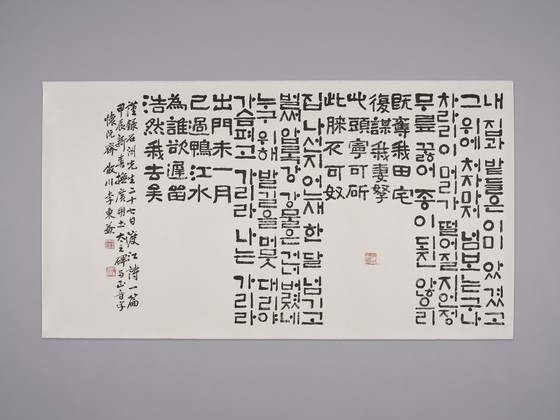 내 집과 밭들은 이미 앗겼고
그 위에 처자마저 넘보는구나
차라리 머리가 떨어질지언정
무릎 꿇어 종이 되진 않으리
旣奪我田宅
復謀我妻孥
此頭寧可斫
此膝不可奴
집 나선지 어느새 한 달 넘기고
벌써 압록강 강물은 건너 버렸네
누구 위해 발길을 머뭇 대리야
가슴펴고 가리라 나는 가리라
出門未一月
已過鴨江水
為誰欲遲留
浩然我去矣
謹錄石洲先生二十七日渡江詩一篇
甲辰新春撫廣開土太王碑与正音字
齋 川 李東益